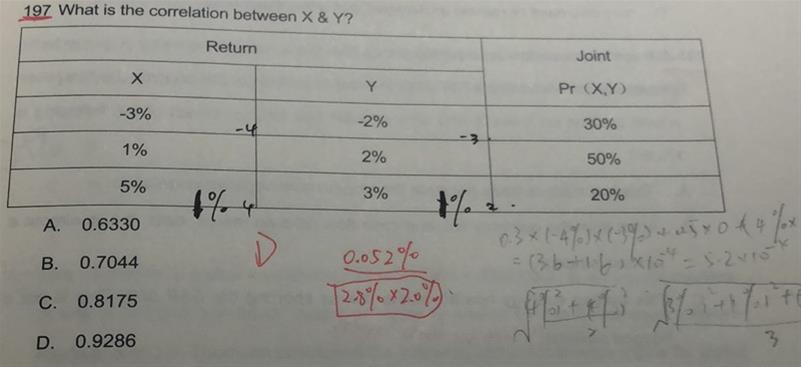 197 What is the correlation between X & Y?
Return Joint
X Y Pr (X,Y)
-3% -4 -2% -3 30%
1% 2% 50%
5% 1% 4 3% 1% 2 20%
A. 0.6330
B. 0.7044
C. 0.8175
D. 0.9286
D
0.052%
2.8% × 2.0%
0.3 × (-4%) × (-3%) + 0.5 × 0 +
= (3.6 + 1.6) × 10⁻⁴ = 5.2 × 10⁻⁴
3